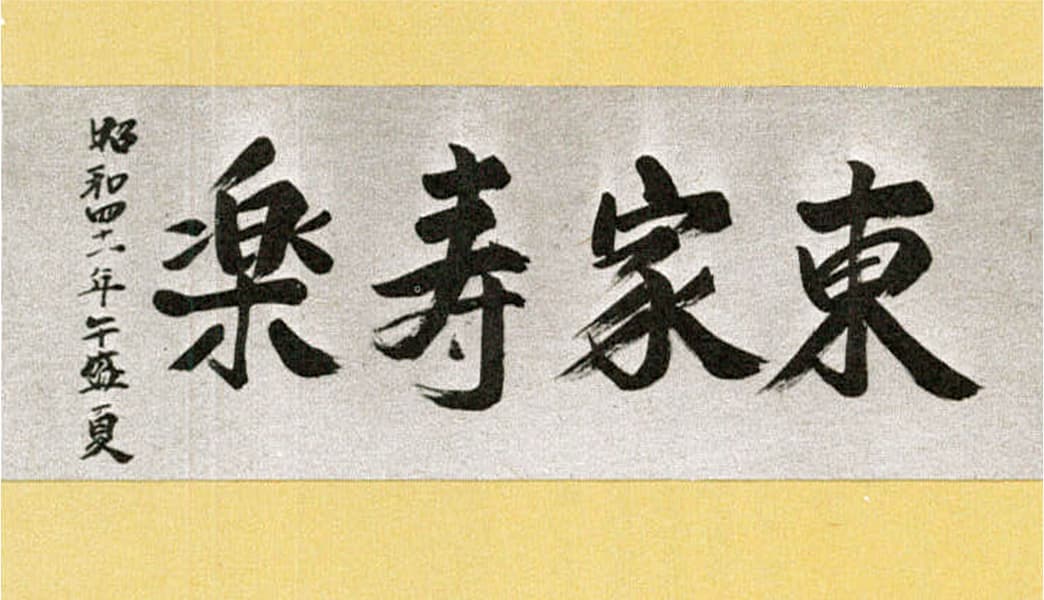 東家寿楽
昭和四十一年午盛夏